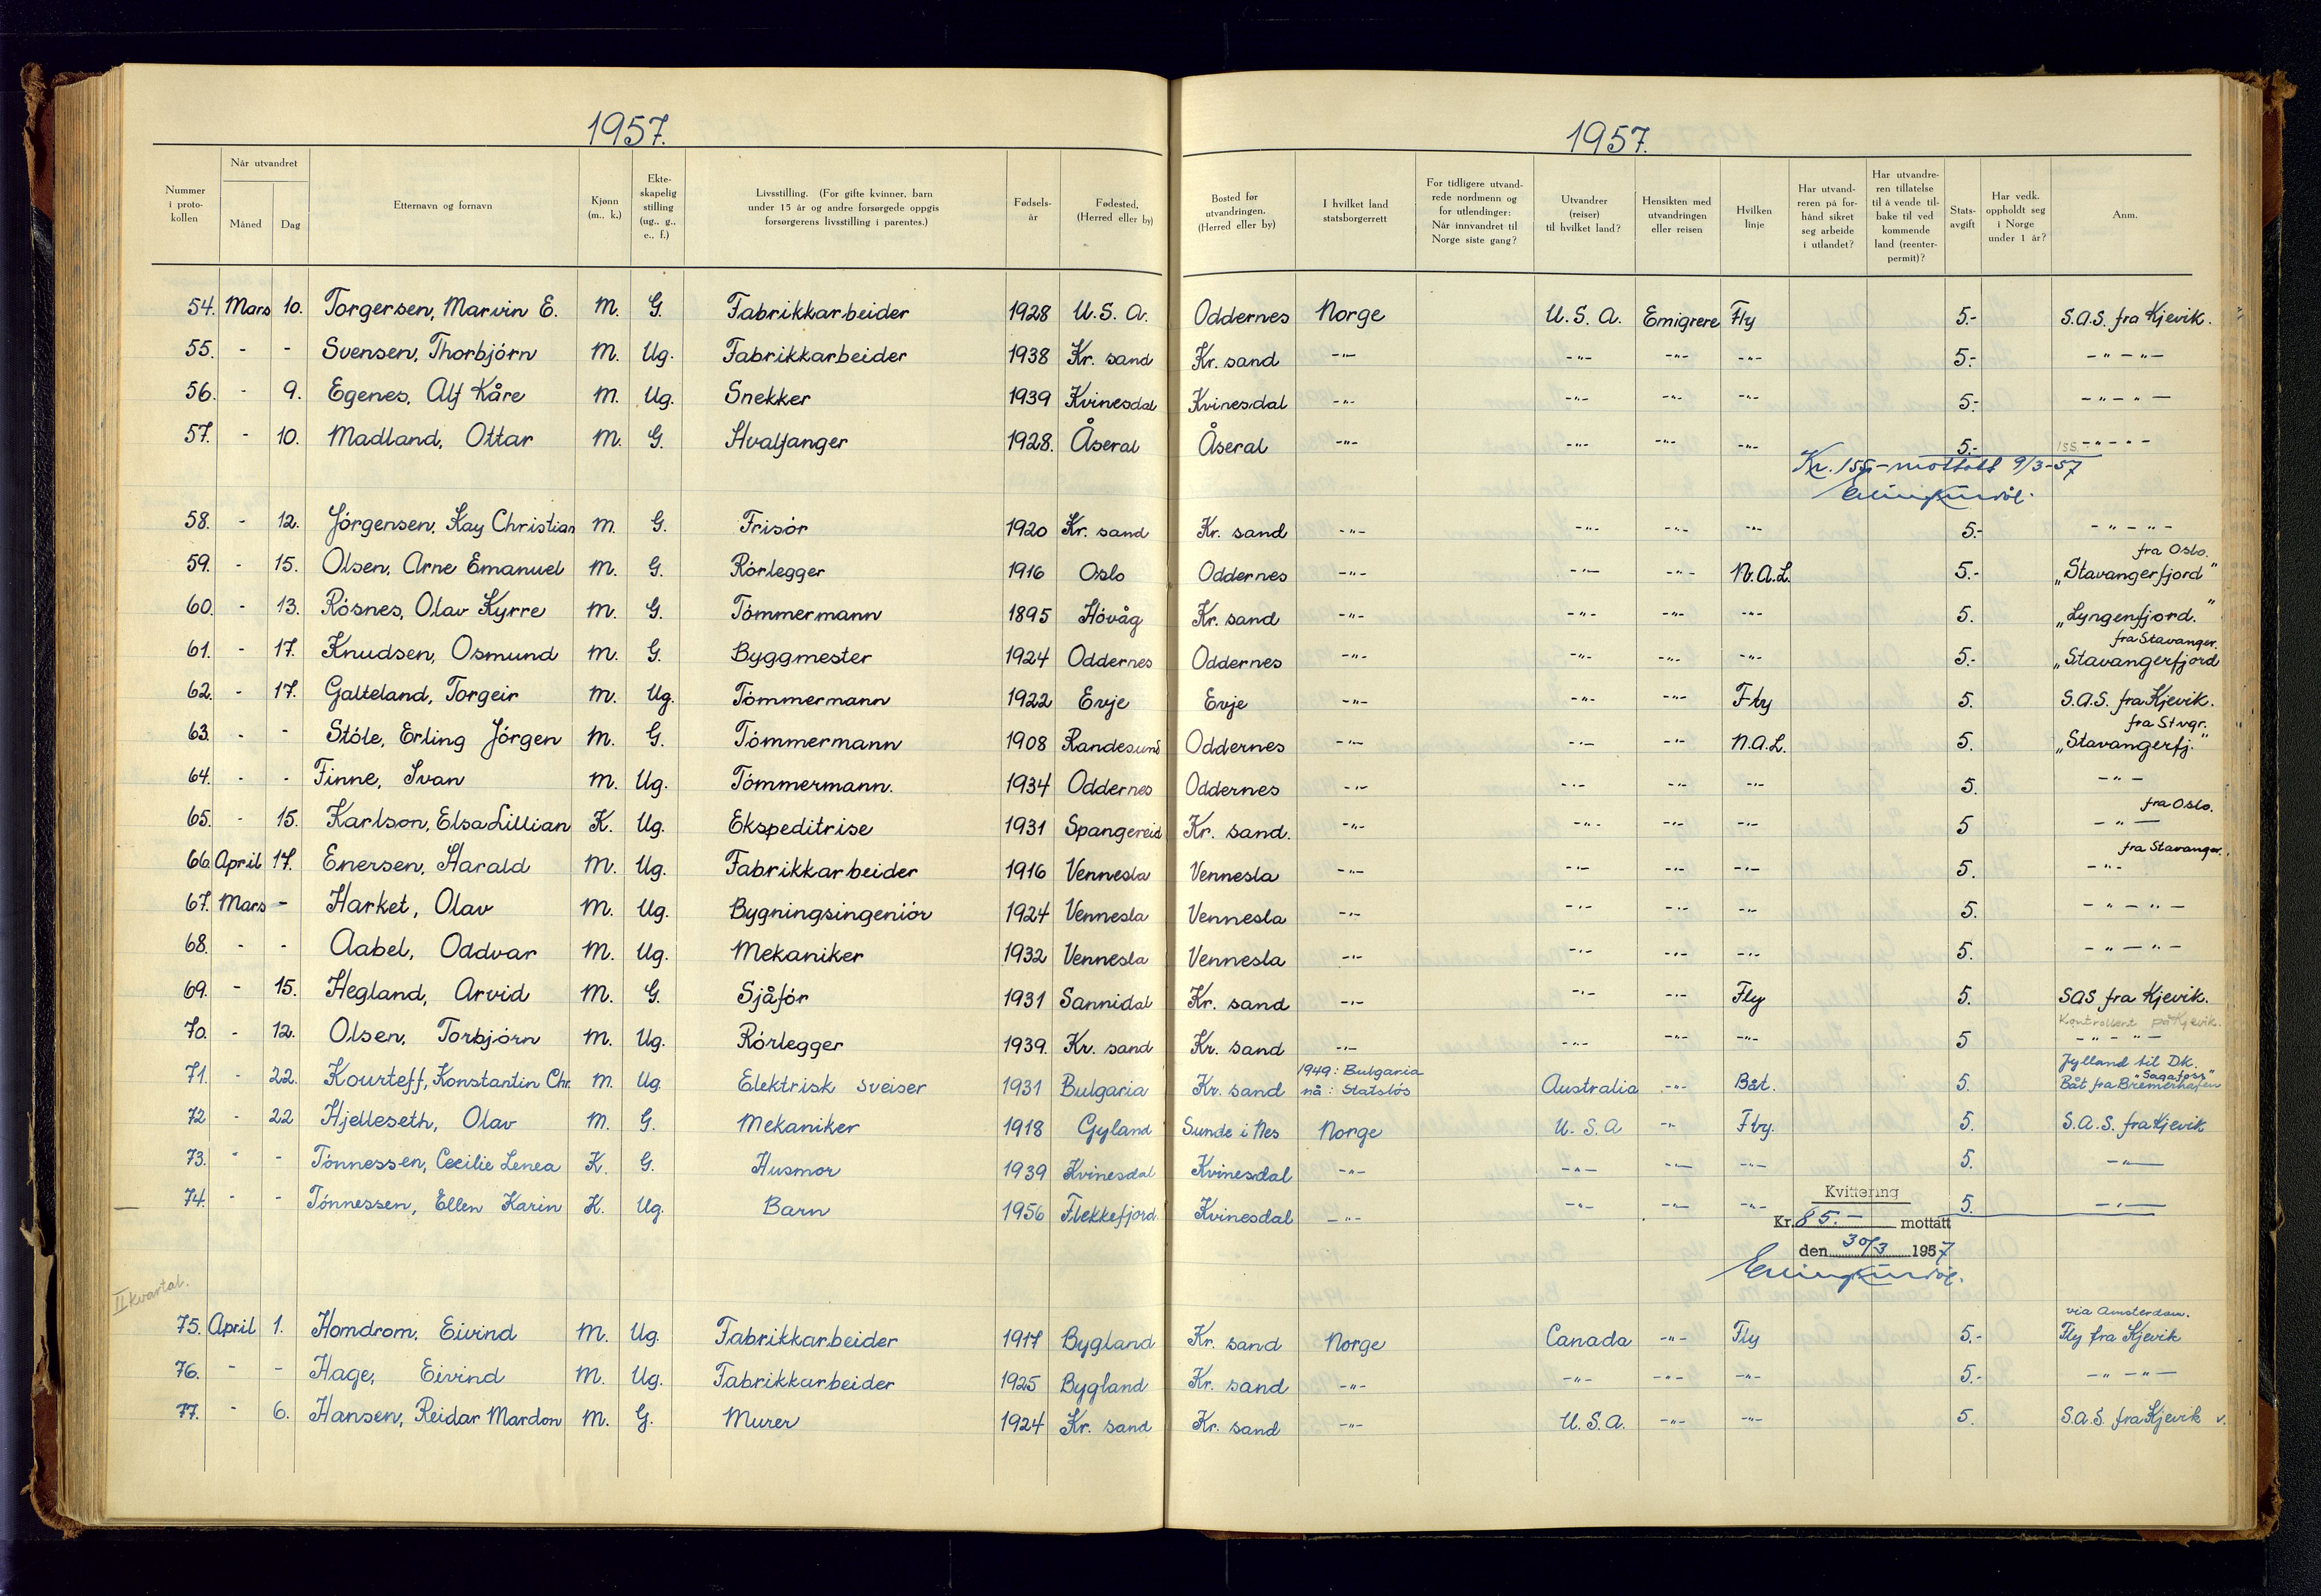 1957.
1957.
Nummer i protokollen | Når utvandret Måned Dag | Etternavn og fornavn | Kjønn (m., k.) | Ekteskapelig stilling (ug., g., e., f.) | Livsstilling. (For gifte kvinner, barn under 15 år og andre forsørgede oppgis forsørgerens livsstilling i parentes.) | Fødselsår | Fødested, (Herred eller by) | Bosted før utvandringen. (Herred eller by) | I hvilket land statsborgerrett | For tidligere utvandrede nordmenn og for utlendinger: Når innvandret til Norge siste gang? | Utvandrer (reiser) til hvilket land? | Hensikten med utvandringen eller reisen | Hvilken linje | Har utvandreren på forhånd sikret seg arbeide i utlandet? | Har utvandreren tillatelse til å vende tilbake til ved kommende land (reenterpermit)? | Statsavgift | Har vedk. oppholdt seg i Norge under 1 år? | Anm.
54. Mars 10. Torgersen, Marvin E. M. G. Fabrikkarbeider 1928 U.S.A. Oddernes Norge U.S.A. Emigrere Fly 5.- S.A.S. fra Kjevik.
55. - - Svensen, Thorbjörn M. Ug. Fabrikkarbeider 1938 Kr. sand Kr. sand -"- -"- -"- -"- 5.- -"-"-
56. - 9. Egenes, Alf Kåre M. Ug. Snekker 1939 Kvinesdal Kvinesdal -"- -"- -"- -"- 5.- -"-"-
57. - 10. Madland, Ottar M. G. Hvalfanger 1928. Åseral Åseral -"- -"- -"- -"- 5.- 155 -"-"-
Kr. 155,- mottatt 9/3-57
58. - 12. Jörgensen, Kay Christian M. G. Frisör 1920 Kr. sand Kr. sand -"- -"- -"- -"- 5.- -"-"-
59. - 15. Olsen, Arne Emanuel M. G. Rörlegger 1916 Oslo Oddernes -"- -"- -"- N.A.L. 5.- fra Oslo. „Stavangerfjord"
60. - 13. Rösnes, Olav Kyrre M. G. Tömmermann 1895 Hövåg Kr. sand -"- -"- -"- -"- 5. „Lyngenfjord."
61. - 17. Knudsen, Osmund M. G. Byggmester 1924 Oddernes Oddernes -"- -"- -"- -"- 5.- fra Stavanger. „Stavangerfjord
62. - 17. Galteland, Torgeir M. Ug. Tömmermann 1922 Evje Evje -"- -"- -"- Fly 5. S.A.S. fra Kjevik.
63. - - Stöle, Erling Jörgen M. G. Tömmermann 1908 Randesund Oddernes -"- -"- -"- N.A.L. 5. fra Stvgr. „Stavangerfj."
64. - - Finne, Ivan M. Ug. Tömmermann. 1934 Oddernes Oddernes -"- -"- -"- -"- 5. -"-
65. - 15. Karlson, Elsa Lillian K. Ug. Ekspeditrise 1931 Spangereid Kr. sand. -"- -"- -"- -"- 5 fra Oslo. -"-
66. April 17. Enersen, Harald M. Ug. Fabrikkarbeider 1916 Vennesla Vennesla -"- -"- -"- -"- 5. fra Stavanger. -"-
67. Mars - Harket, Olav M. Ug. Bygningsingeniör 1924 Vennesla Vennesla -"- -"- -"- -"- 5. -"-"-
68. - - Aabel, Oddvar M. Ug. Mekaniker 1932 Vennesla Vennesla -"- -"- -"- -"- 5. -"-"-
69. - 15. Hegland, Arvid M. G. Sjåför 1931 Sannidal Kr. sand -"- -"- -"- Fly 5. SAS fra Kjevik.
70. - 12. Olsen, Torbjörn M. Ug. Rörlegger 1939. Kr. sand Kr. sand -"- -"- -"- -"- 5 Kontrollert på Kjevik. -"-"-
71. - 22. Kourteff, Konstantin Chr. M. Ug. Elektrisk sveiser 1931 Bulgaria Kr. sand 1949: Bulgaria nå: Statslös Australia -"- Båt. 5. Jylland til DK. "Sagafoss" Båt fra Bremerhafen
72 - 22 Hjelleseth, Olav M. G. Mekaniker 1918 Gyland Sunde i Nes Norge U.S.A -"- Fly. 5. S.A.S. fra Kjevik
73. - - Tönnessen, Cecilie Lenea K. G. Husmor 1939 Kvinesdal Kvinesdal -"- -"- -"- -"- 5. -"-
74. - - Tönnessen, Ellen Karin K. Ug. Barn 1956 Flekkefjord. Kvinesdal -"- -"- -"- -"- 5. -"-
Kvittering
Kr. 85.- mottatt
den 30/3 1957
II kvartal.
75. April 1. Homdrom, Eivind M. Ug. Fabrikkarbeider 1917 Bygland Kr. sand Norge Canada -"- Fly 5.- via Amsterdam. Fly fra Kjevik
76. - - Hage, Eivind M. Ug. Fabrikkarbeider 1925 Bygland Kr. sand -"- -"- -"- -"- 5.- -"-"-
77. - 6. Hansen, Reidar Mardon M. G. Murer 1924 Kr. sand Kr. sand -"- U.S.A. -"- -"- 5. S.A.S. fra Kjevik v.